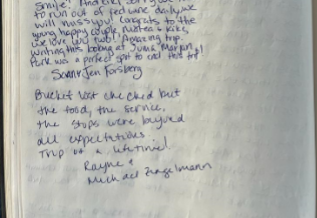 to run out of red wine daily, we
will miss you! Congrats to the
young happy couple,
we love you two! Amazing trip.
writing this looking at
Park was a perfect spot to end this trip!
Jen Forsberg
Bucket list checked but
the food, the service,
the stops were beyond
all expectations.
Trip of a lifetime!
Rayne &
Michael